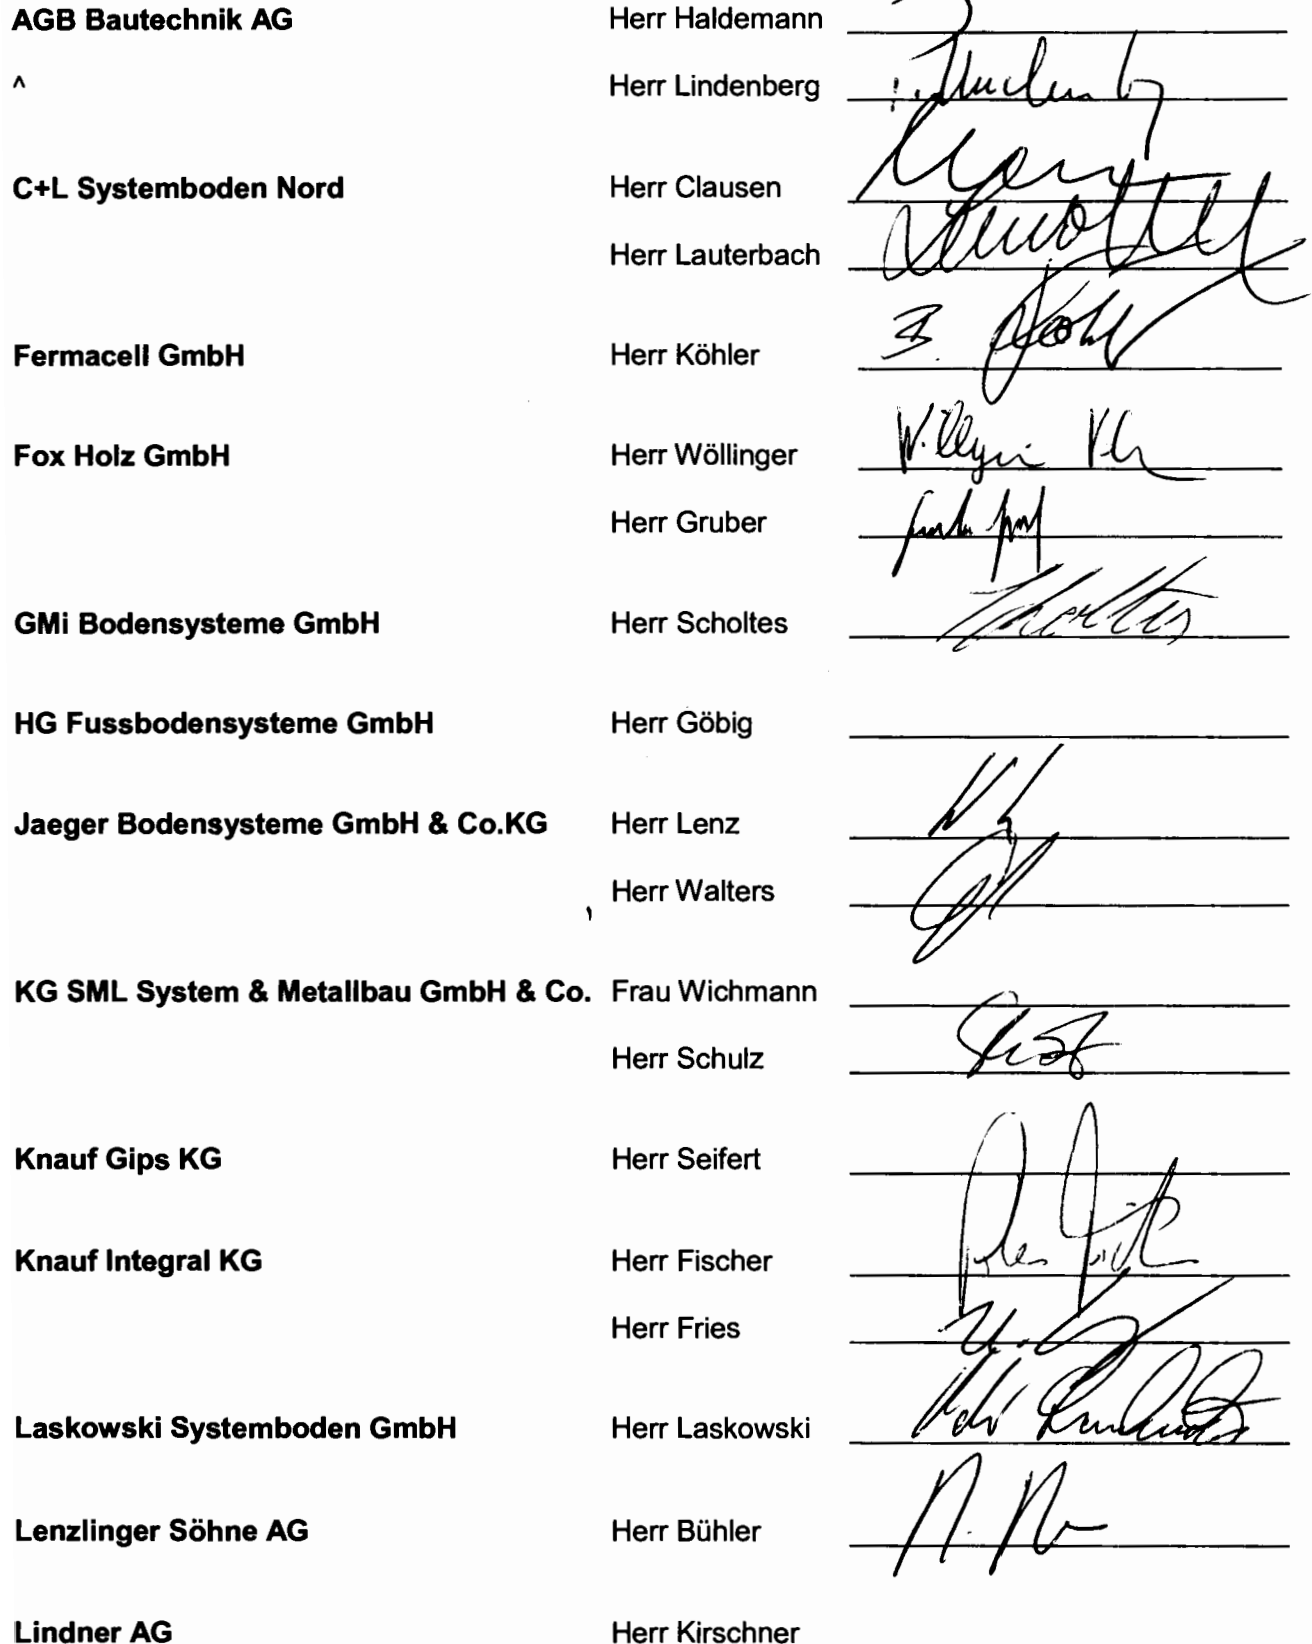 AGB Bautechnik AG Herr Haldemann
^ Herr Lindenberg
C+L Systemboden Nord Herr Clausen
Herr Lauterbach
Fermacell GmbH Herr Köhler
Fox Holz GmbH Herr Wöllinger
Herr Gruber
GMi Bodensysteme GmbH Herr Scholtes Scholtes
HG Fussbodensysteme GmbH Herr Göbig
Jaeger Bodensysteme GmbH & Co.KG Herr Lenz
Herr Walters
KG SML System & Metallbau GmbH & Co. Frau Wichmann
Herr Schulz
Knauf Gips KG Herr Seifert
Knauf Integral KG Herr Fischer
Herr Fries
Laskowski Systemboden GmbH Herr Laskowski
Lenzlinger Söhne AG Herr Bühler
Lindner AG Herr Kirschner